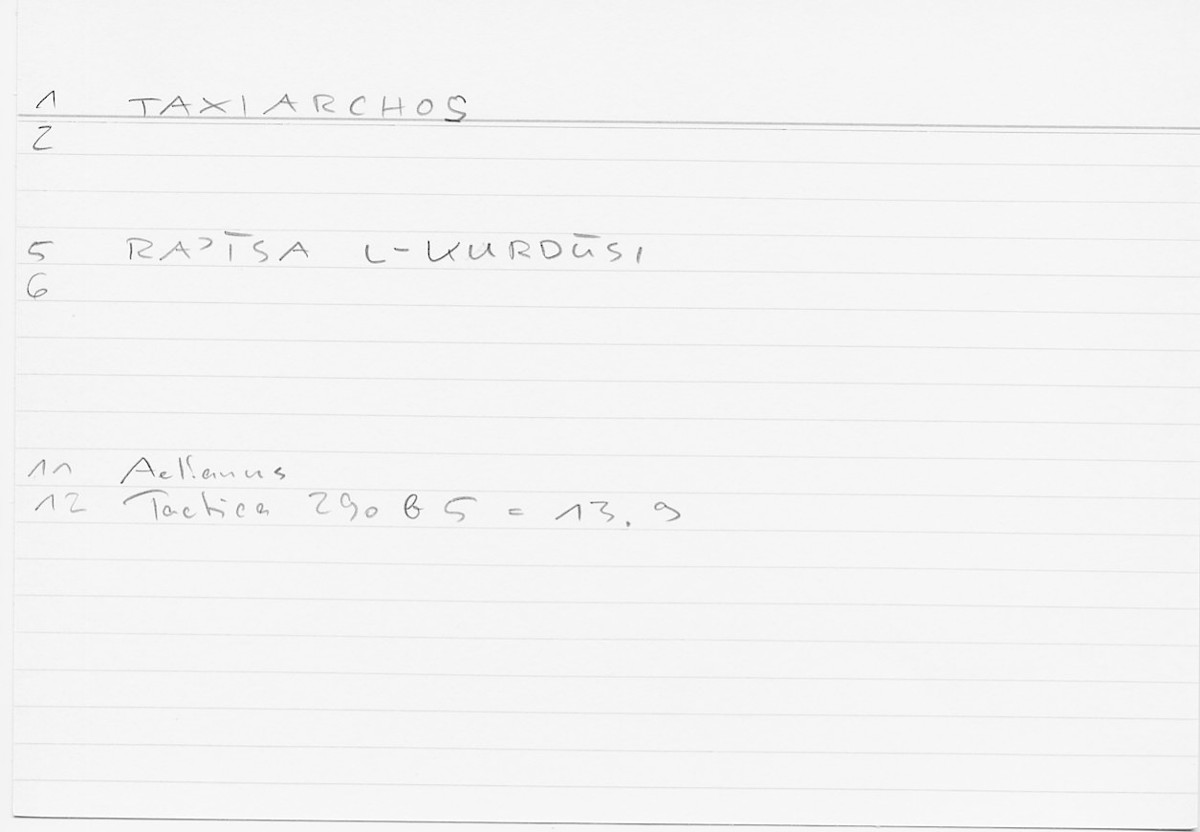 1 TAXIARCHOS
2
5 RAʾĪSA L-KURDŪSI
6
11 Aelianus
12 Tactica 290 b 5 = 13.9